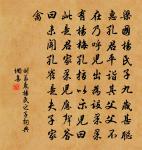 梁國楊氏子九歲甚聰
惠孔君平詣其父父不
在乃呼兒出為設果果
有楊梅孔指以示兒曰
此是君家果兒應聲答
曰未聞孔雀是夫子家
禽
楊氏之子